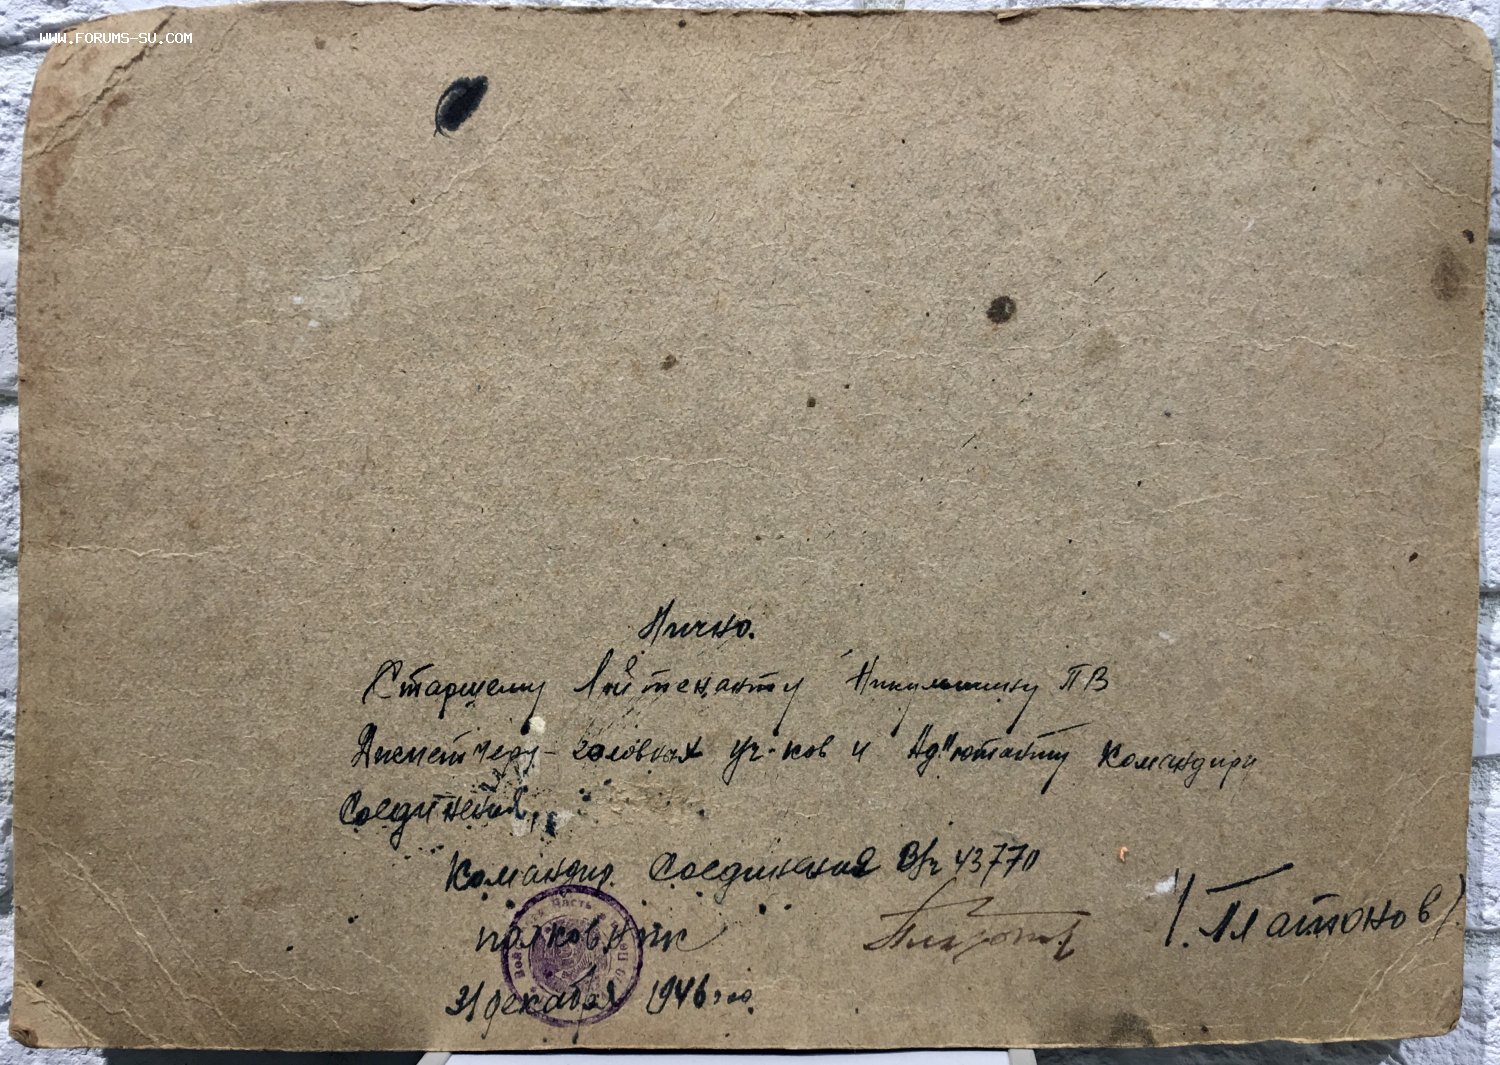 WWW.FORUMS-SU.COM
Лично.
Старшему Лейтенанту Никульшину П В
Диспетчеру - головных уч-ков и Ад"ютанту командира
Соединения,
Командир Соединения В/ч 43770
полковник
/Платонов/
31 декабря 1946 го